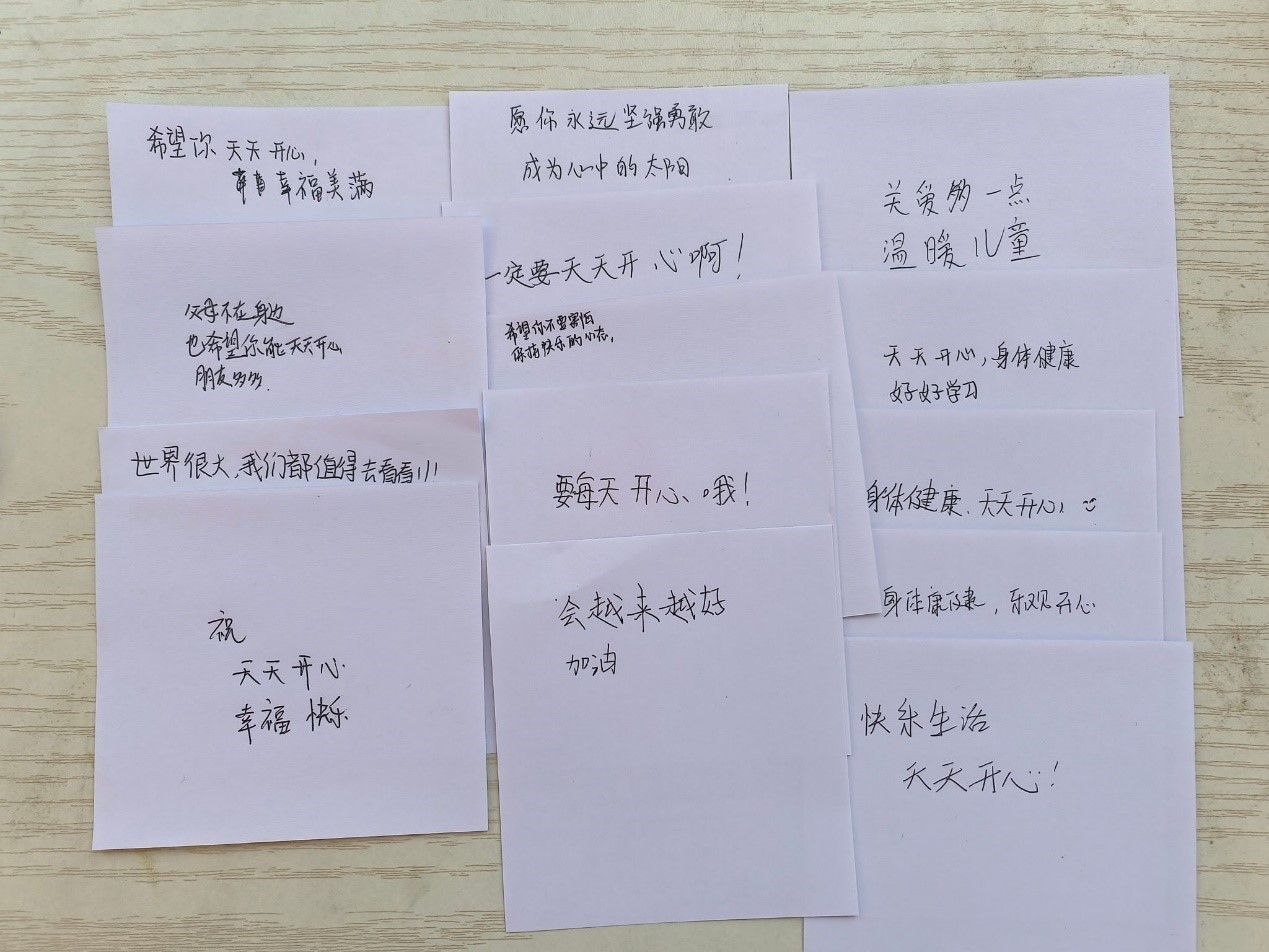 希望你天天开心,
幸福美满
父母不在身边
也希望你能天天开心
朋友多多.
世界很大,我们都值得去看看!!!
祝
天天开心
幸福快乐
愿你永远坚强勇敢
成为心中的太阳
一定要天天开心啊!
希望你不要害怕
保持快乐的心态,
要每天开心哦!
会越来越好
加油
关爱多一点
温暖儿童
天天开心,身体健康
好好学习
身体健康、天天开心!
身体康健,乐观开心
快乐生活
天天开心!